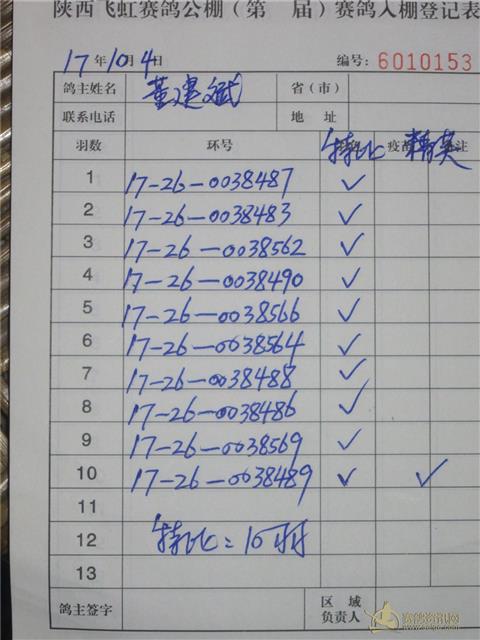 陕西飞虹赛鸽公棚（第 届）赛鸽入棚登记表
17年10月4日 编号：6010153
鸽主姓名 董建斌 省（市）
联系电话 地 址
羽数 环号 特比 疫苗 精英 注
1 17-26-0038487 ✓
2 17-26-0038483 ✓
3 17-26-0038562 ✓
4 17-26-0038490 ✓
5 17-26-0038566 ✓
6 17-26-0038564 ✓
7 17-26-0038488 ✓
8 17-26-0038486 ✓
9 17-26-0038569 ✓
10 17-26-0038489 ✓ ✓
11
12 特比：10羽
13
鸽主签字 区域负责人
赛鸽资讯网